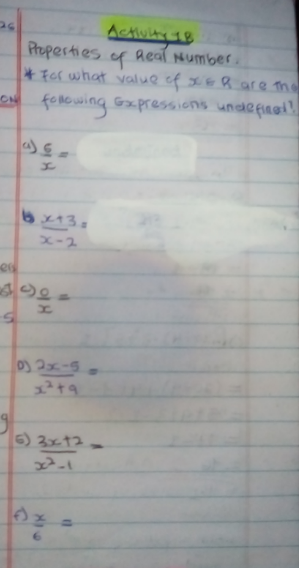 Activity 1B
Properties of Real Number.
* For what value of x ∈ R are the
following Expressions undefined?
a) 6/x =
b) x+3/x-2 =
c) 0/x =
D) 2x-5/x²+9 =
E) 3x+2/x²-1 =
f) x/6 =